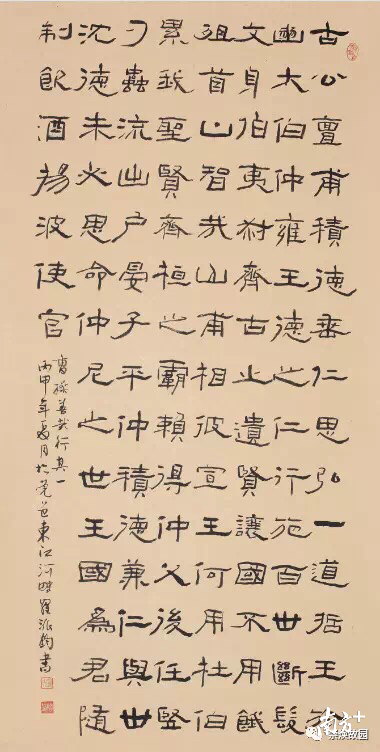 古公亶甫積德垂仁思弘一道哲王於
豳大伯仲雍王德之仁行施百世斷髮
文身伯夷叔齊古之遺賢讓國不用餓
殂首山智哉山甫相彼宣王何用杜伯
累我聖賢齊桓之霸賴得仲父後任豎
刁蟲流出戶晏子平仲積德兼仁與世
沈德未必思命仲尼之世王國為君隨
制飲酒揚波使官
曹操善哉行其一
丙申年夏月於莞邑東江河畔書
南方+
故园